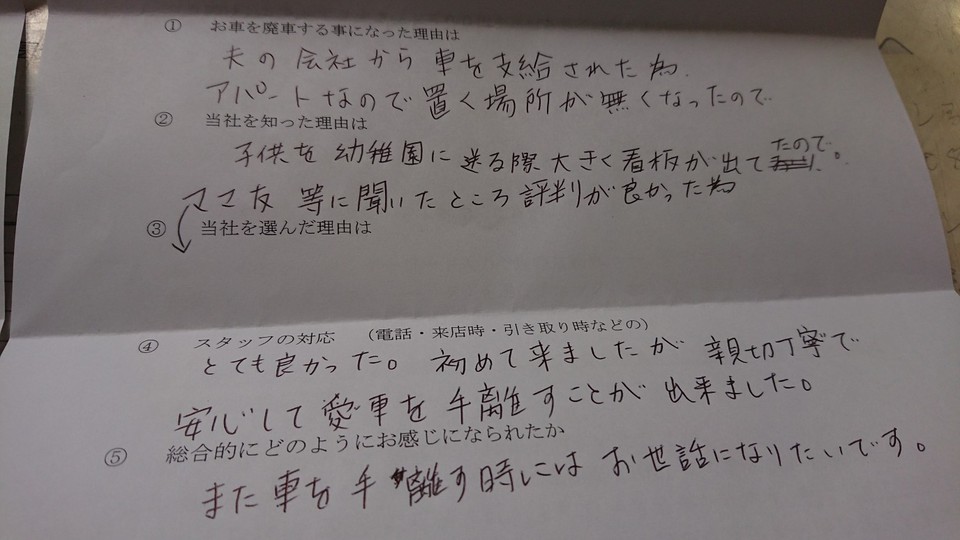 ① お車を廃車する事になった理由は
夫の会社から車を支給された為.
アパートなので置く場所が無くなったので
② 当社を知った理由は
子供を幼稚園に送る際大きく看板が出てたので。
ママ友等に聞いたところ評判が良かった為
③ 当社を選んだ理由は
④ スタッフの対応 (電話・来店時・引き取り時などの)
とても良かった。初めて来ましたが親切丁寧で
安心して愛車を手離すことが出来ました。
⑤ 総合的にどのようにお感じになられたか
また車を手離す時にはお世話になりたいです。